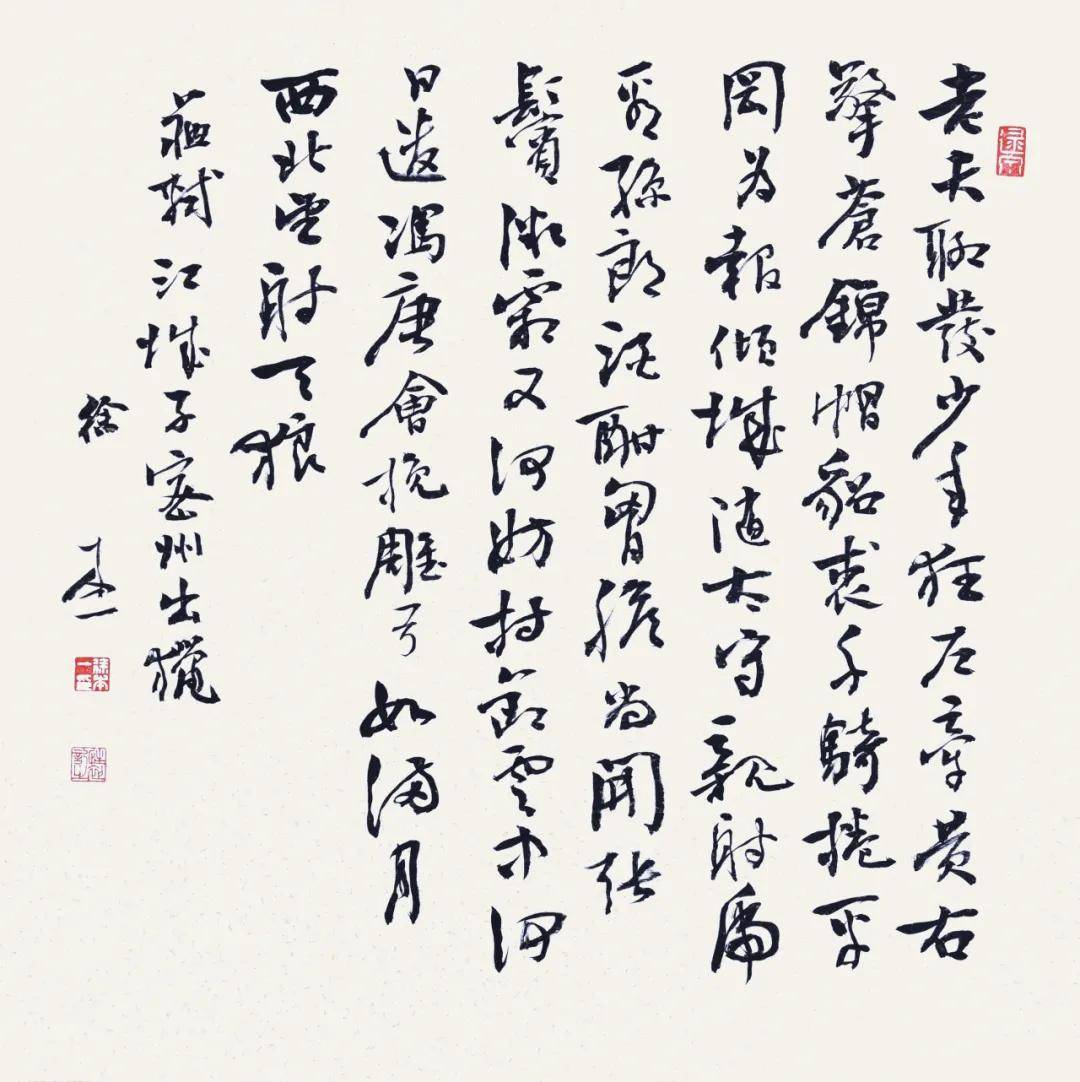 老夫聊發少年狂左牽黃右
擎蒼錦帽貂裘千騎捲平
岡為報傾城隨太守親射虎
看孫郎酒酣胷膽尚開張
鬢微霜又何妨持節雲中何
日遣馮唐會挽雕弓如滿月
西北望射天狼
蘇軾江城子密州出獵
徐本一
徐本一印